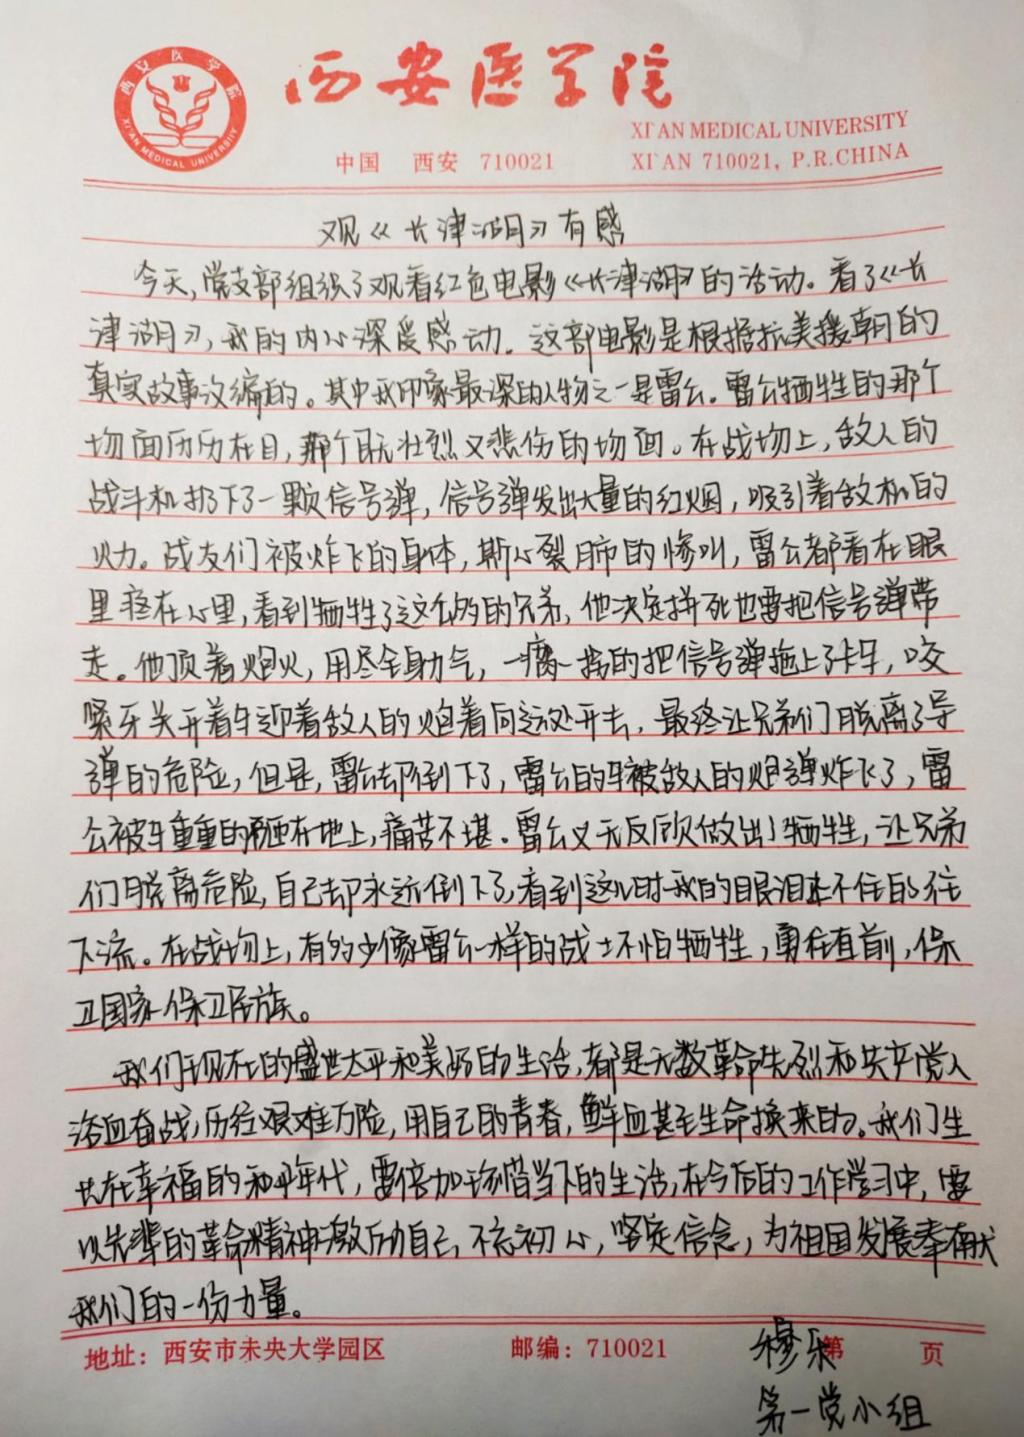 西安医学院
XI'AN MEDICAL UNIVERSITY
西安医学院
XI'AN MEDICAL UNIVERSITY
中国 西安 710021
XI'AN 710021, P.R.CHINA
观《长津湖》有感
今天,党支部组织了观看红色电影《长津湖》的活动。看了《长
津湖》,我的内心深受感动。这部电影是根据抗美援朝的
真实故事改编的。其中我印象最深的人物之一是雷公。雷公牺牲的那个
场面历历在目,那个既壮烈又悲伤的场面。在战场上,敌人的
战斗机扔下了一颗信号弹,信号弹发出大量的红烟,吸引着敌机的
火力。战友们被炸飞的身体,撕心裂肺的惨叫,雷公都看在眼
里疼在心里,看到牺牲了这么多的兄弟,他决定拼死也要把信号弹带
走。他顶着炮火,用尽全身力气,一瘸一拐的把信号弹拖上了卡车,咬
紧牙关开着车迎着敌人的炮着向远处开去,最终让兄弟们脱离了导
弹的危险,但是,雷公却倒下了,雷公的车被敌人的炮弹炸飞了,雷
公被车重重的砸在地上,痛苦不堪。雷公义无反顾做出了牺牲,让兄弟
们脱离危险,自己却永远倒下了,看到这儿时我的眼泪止不住的往
下流。在战场上,有多少像雷公一样的战士不怕牺牲,勇往直前,保
卫国家保卫民族。
我们现在的盛世太平和美好的生活,都是无数革命先烈和共产党人
浴血奋战,历经艰难万险,用自己的青春,鲜血甚至生命换来的。我们生
长在幸福的和平年代,要倍加珍惜当下的生活,在今后的工作学习中,要
以先辈的革命精神激励自己,不忘初心,坚定信念,为祖国发展奉献
我们的一份力量。
地址:西安市未央大学园区 邮编:710021 第 页
穆乐
第一党小组